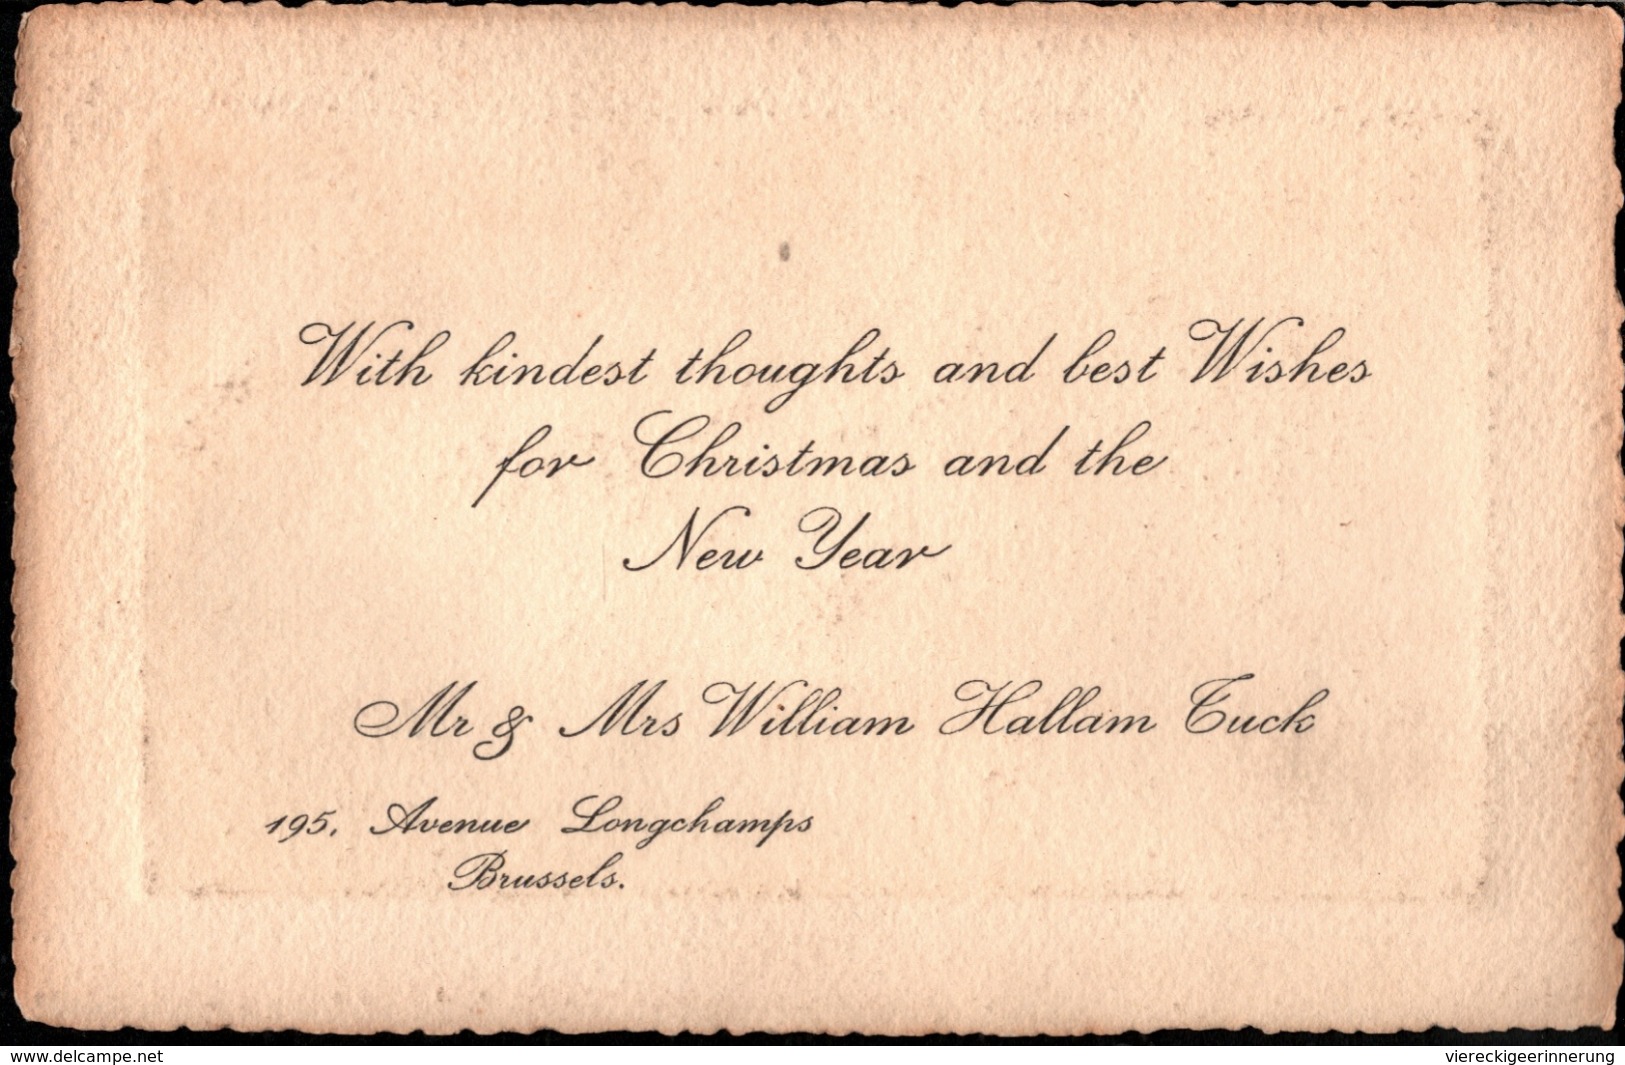 With kindest thoughts and best Wishes
for Christmas and the
New Year
Mr & Mrs William Hallam Tuck
195. Avenue Longchamps
Brussels.
www.delcampe.net
viereckigeerinnerung